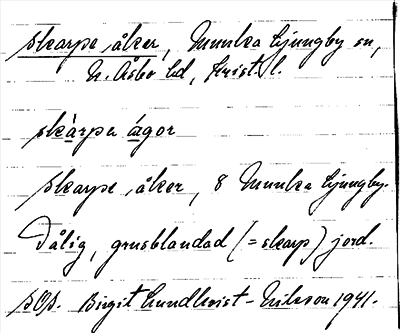 skarpe åker, Munka Ljungby sn,
N. Åsbo hd, Krist. l.
skàrpa ágor
Skarpe åker, 8 Munka Ljungby.
Dålig, grusblandad (= skarp) jord.
sOp. Birgit Lundkvist-Nilsson 1941.